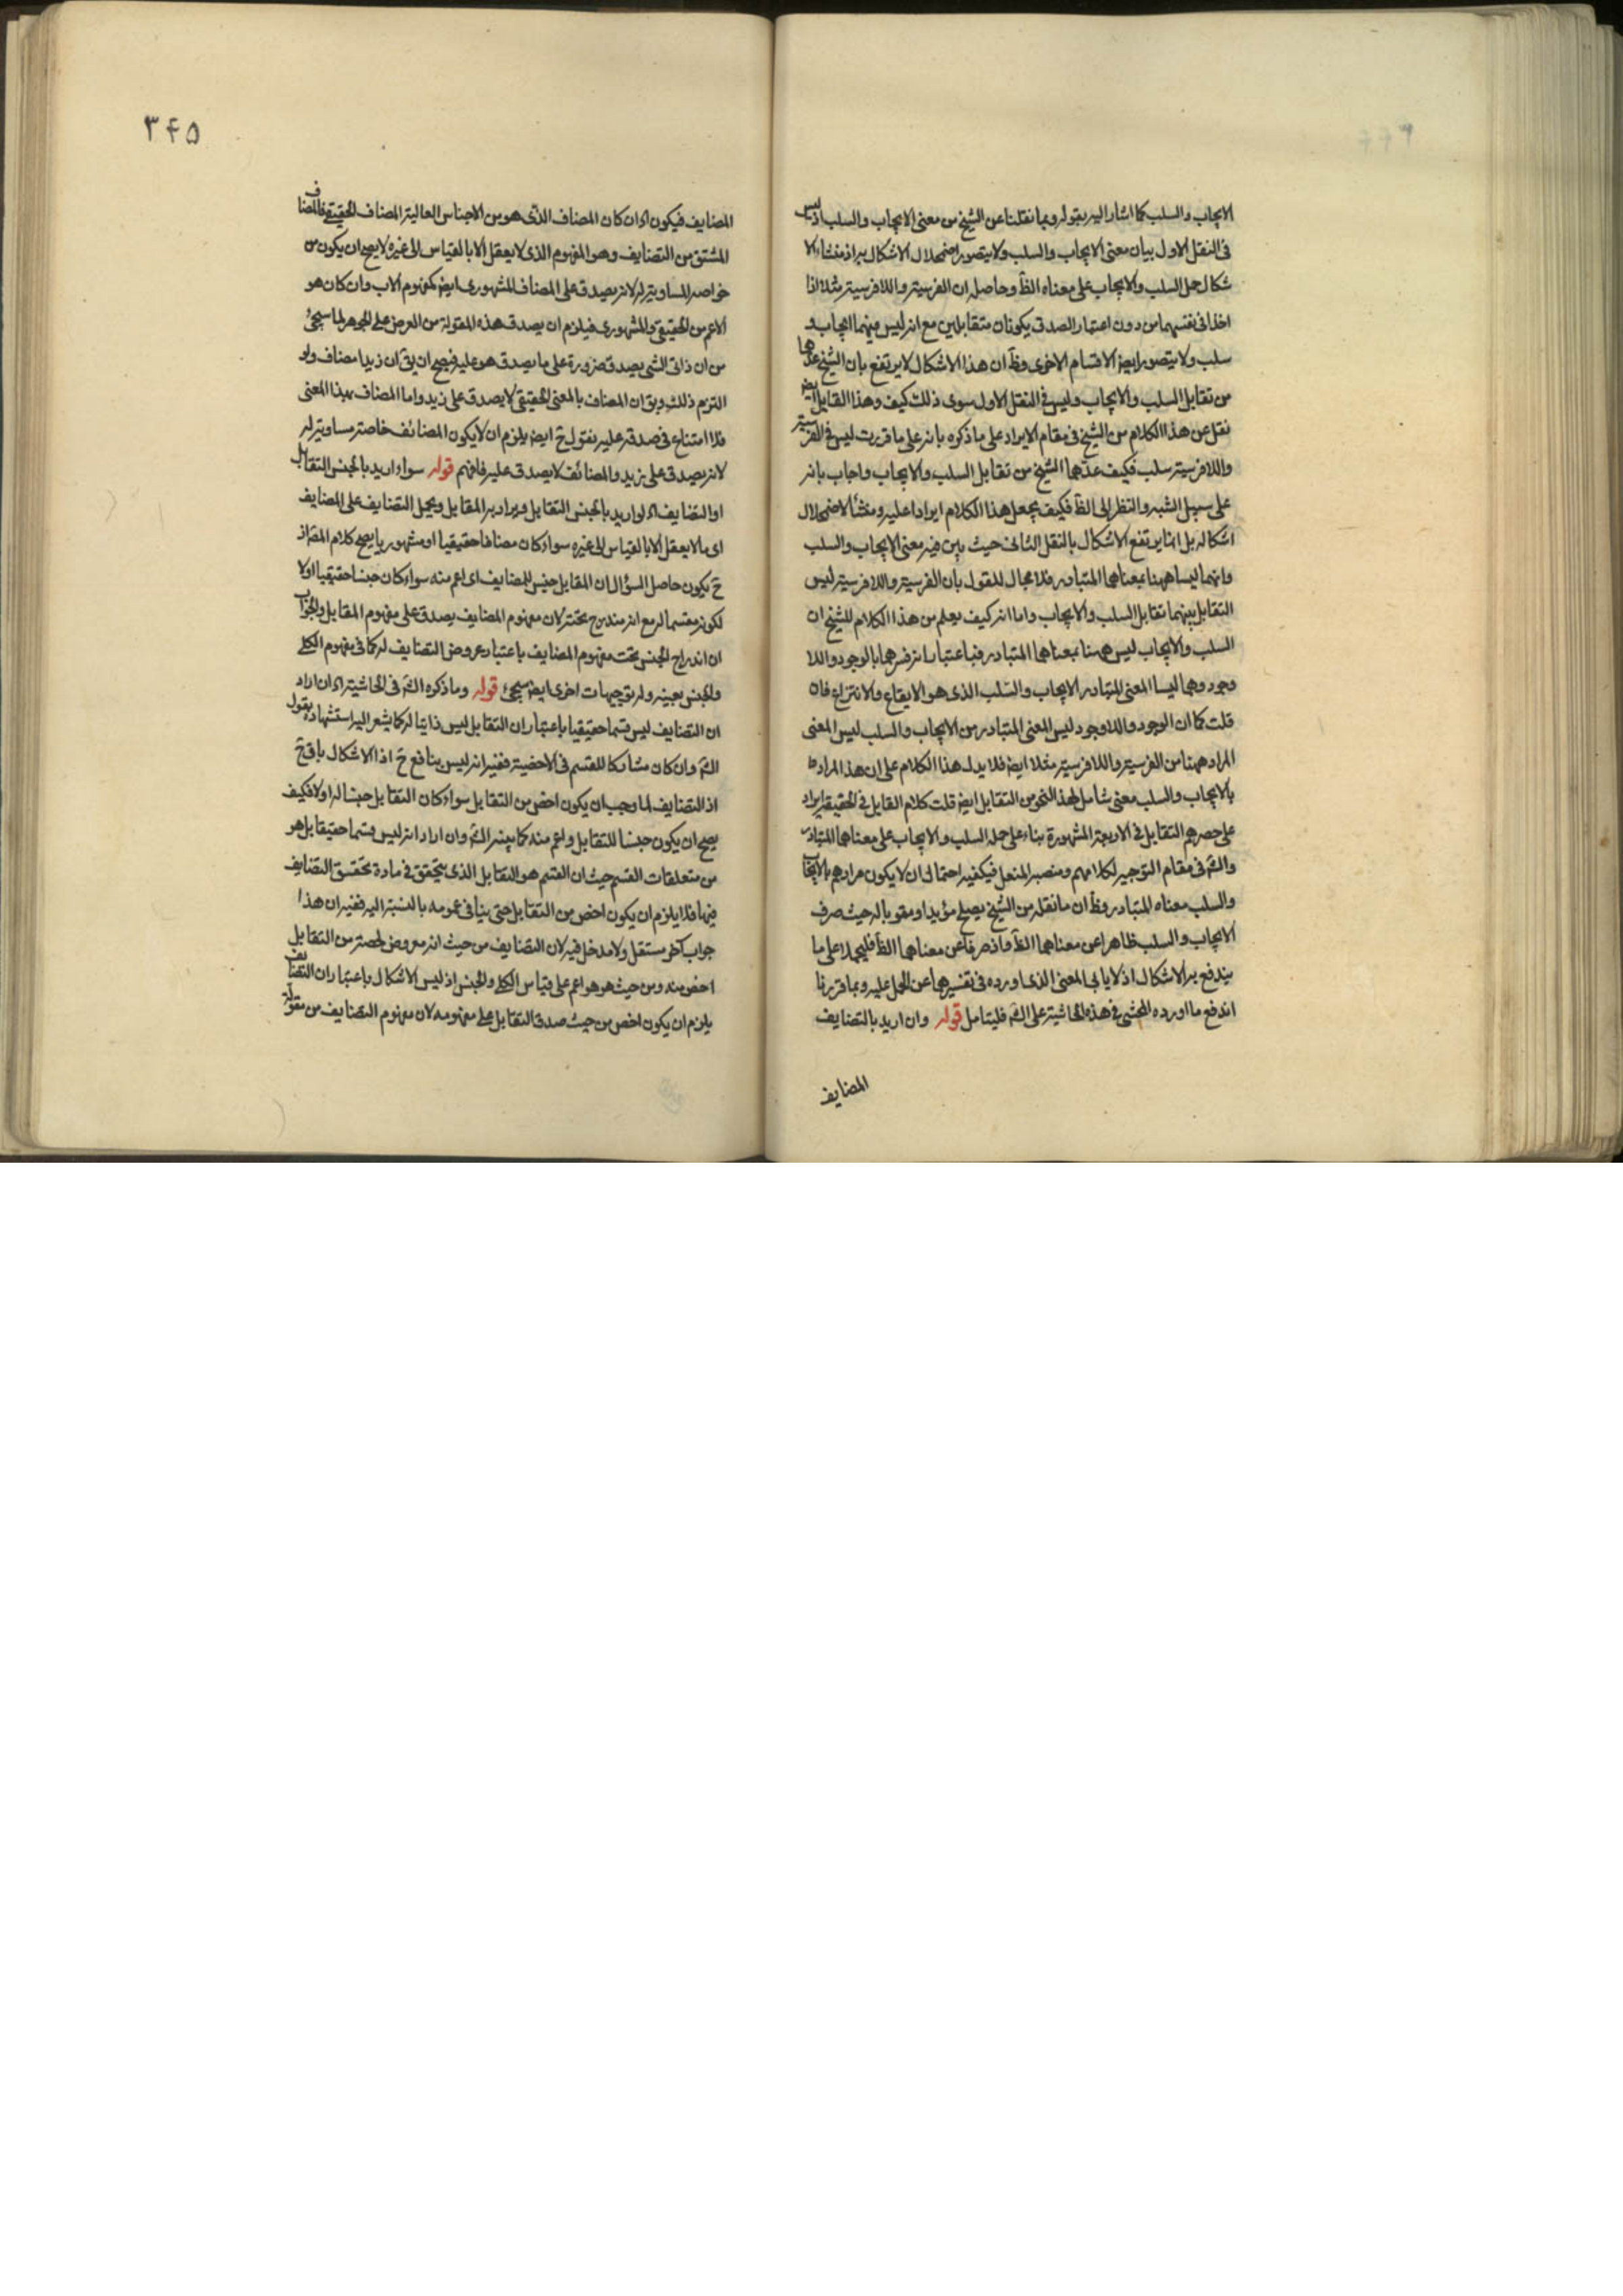 الايجاب والسلب كما اشار اليه بقوله وبما نقلنا عن الشيخ من معنى الايجاب والسلب اذ ليس
فى النقل الاول بيان معنى الايجاب والسلب ولا يتصور اضمحلال الاشكال به اذ منشاء الا
شكال حمل السلب والايجاب على معناه الظ وحاصله ان الفرسية واللافرسية مثلا اذا
اخذا فى نفسهما من دون اعتبار الصدق يكونان متقابلين مع انه ليس بينهما ايجاب و
سلب ولا يتصور ايضا الاقسام الاخرى وظ ان هذا الاشكال لا يرتفع بان الشيخ عدهما
من تقابل السلب والايجاب وليس فى النقل الاول سوى ذلك كيف وهذا القايل ايض
نقل عن هذا الكلام من الشيخ فى مقام الايراد على ما ذكره بانه على ما قررت ليس فى الفرسية
واللافرسية سلب فكيف عدهما الشيخ من تقابل السلب والايجاب واجاب بانه
على سبيل الشبه والنظر الى الظ فكيف يجعل هذا الكلام ايرادا عليه ومنشأ لاضمحلال
اشكاله بل انما يرتفع الاشكال بالنقل الثانى حيث بين فيه معنى الايجاب والسلب
وانهما ليسا ههنا بمعناهما المتبادر فلا مجال للقول بان الفرسية واللافرسية ليس
التقابل بينهما تقابل السلب والايجاب واما انه كيف يعلم من هذا الكلام للشيخ ان
السلب والايجاب ليس ههنا بمعناهما المتبادر فباعتبار انه فسرهما بالوجود واللا
وجود وهما ليسا المعنى المتبادر الايجاب والسلب الذى هو الايقاع والانتزاع فان
قلت كما ان الوجود واللاوجود ليس المعنى المتبادر من الايجاب والسلب ليس المعنى
المراد ههنا من الفرسية واللافرسية مثلا ايض فلا يدل هذا الكلام على ان هذا المراد
بالايجاب والسلب معنى شامل لهذا النحو من التقابل ايض قلت كلام القايل فى الحقيقة ايراد
على حصرهم التقابل فى الاربعة المشهورة بناء على حمل السلب والايجاب على معناهما المتبادر
والش فى مقام التوجيه لكلامهم ومنصبه المنع فيكفيه احتمال ان لا يكون مرادهم بالايجاب
والسلب معناه المتبادر وظ ان ما نقله من الشيخ يصلح مؤيدا ومقويا له حيث صرف
الايجاب والسلب ظاهرا عن معناهما الظ واذ صرفا عن معناهما الظ فليحملا على ما
يندفع به الاشكال اذ لا يابى المعنى الذى اورده فى تفسيرهما عن الحمل عليه وبما قررنا
اندفع ما اورده المحشى فى هذه الحاشية على الش فليتامل قوله وان اريد بالتضايف
المضايف
٣۴۵
المضايف فيكون اه ان كان المضاف الذى هو من الاجناس العالية المضاف الحقيقى فالمضاف
المشتق من التضايف وهو المفهوم الذى لا يعقل الا بالقياس الى غيره لا يصح ان يكون من
خواصه المساوية له لانه يصدق على المضاف المشهورى ايض كمفهوم الاب وان كان هو
الاعم من الحقيقى والمشهورى فيلزم ان يصدق هذه المقولة من العرض على الجوهر لما سيجئ
من ان ذاتى الشى يصدق ضرورة على ما يصدق هو عليه فيصح ان يق ان زيدا مضاف ولو
التزم ذلك ويق ان المضاف بالمعنى الحقيقى لا يصدق على زيد واما المضاف بهذا المعنى
فلا امتناع فى صدقه عليه نقول ح ايض يلزم ان لا يكون المضائف خاصة مساوية له
لانه يصدق على زيد والمضائف لا يصدق عليه فافهم قوله سواء اريد بالجنس التقابل
او التضايف اه لو اريد بالجنس التقابل ويراد به المقابل ويحمل التضايف على المضايف
اى ما لا يعقل الا بالقياس الى غيره سواء كان مضافا حقيقيا او مشهوريا يصح كلام المص اذ
ح يكون حاصل السؤال ان المقابل جنس للمضايف اى اعم منه سواء كان جنسا حقيقيا اولا
لكونه مقسما له مع انه مندرج تحته لان مفهوم المضايف يصدق على مفهوم المقابل والجواب
ان اندراج الجنس تحت مفهوم المضايف باعتبار عروض التضايف له كما فى مفهوم الكلى
والجنس بعينه وله توجيهات اخرى ايض سيجئ قوله وما ذكره الش فى الحاشية اه ان اراد
ان التضايف ليس قسما حقيقيا باعتبار ان التقابل ليس ذاتيا له كما يشعر اليه استشهاده بقول
الش وان كان مشاركا للقسم فى الاخصية ففيه انه ليس بنافع ح اذ الاشكال باق ح
اذ التضايف لما وجب ان يكون اخص من التقابل سواء كان التقابل جنسا له او لا فكيف
يصح ان يكون جنسا للتقابل واعم منه كما بينه الش وان اراد انه ليس قسما حقيقيا بل هو
من متعلقات القسم حيث ان القسم هو التقابل الذى يتحقق فى مادة تحقق التضايف
فيها فلا يلزم ان يكون اخص من التقابل حتى ينافى عمومه بالنسبة اليه ففيه ان هذا
جواب آخر مستقل ولا مدخل فيه لان التضايف من حيث انه معروض لحصة من التقابل
اخص منه ومن حيث هو هو اعم على قياس الكلى والجنس اذ ليس الاشكال باعتبار ان التضايف
يلزم ان يكون اخص من حيث صدق التقابل على مفهومه لان مفهوم التضايف من مقولة